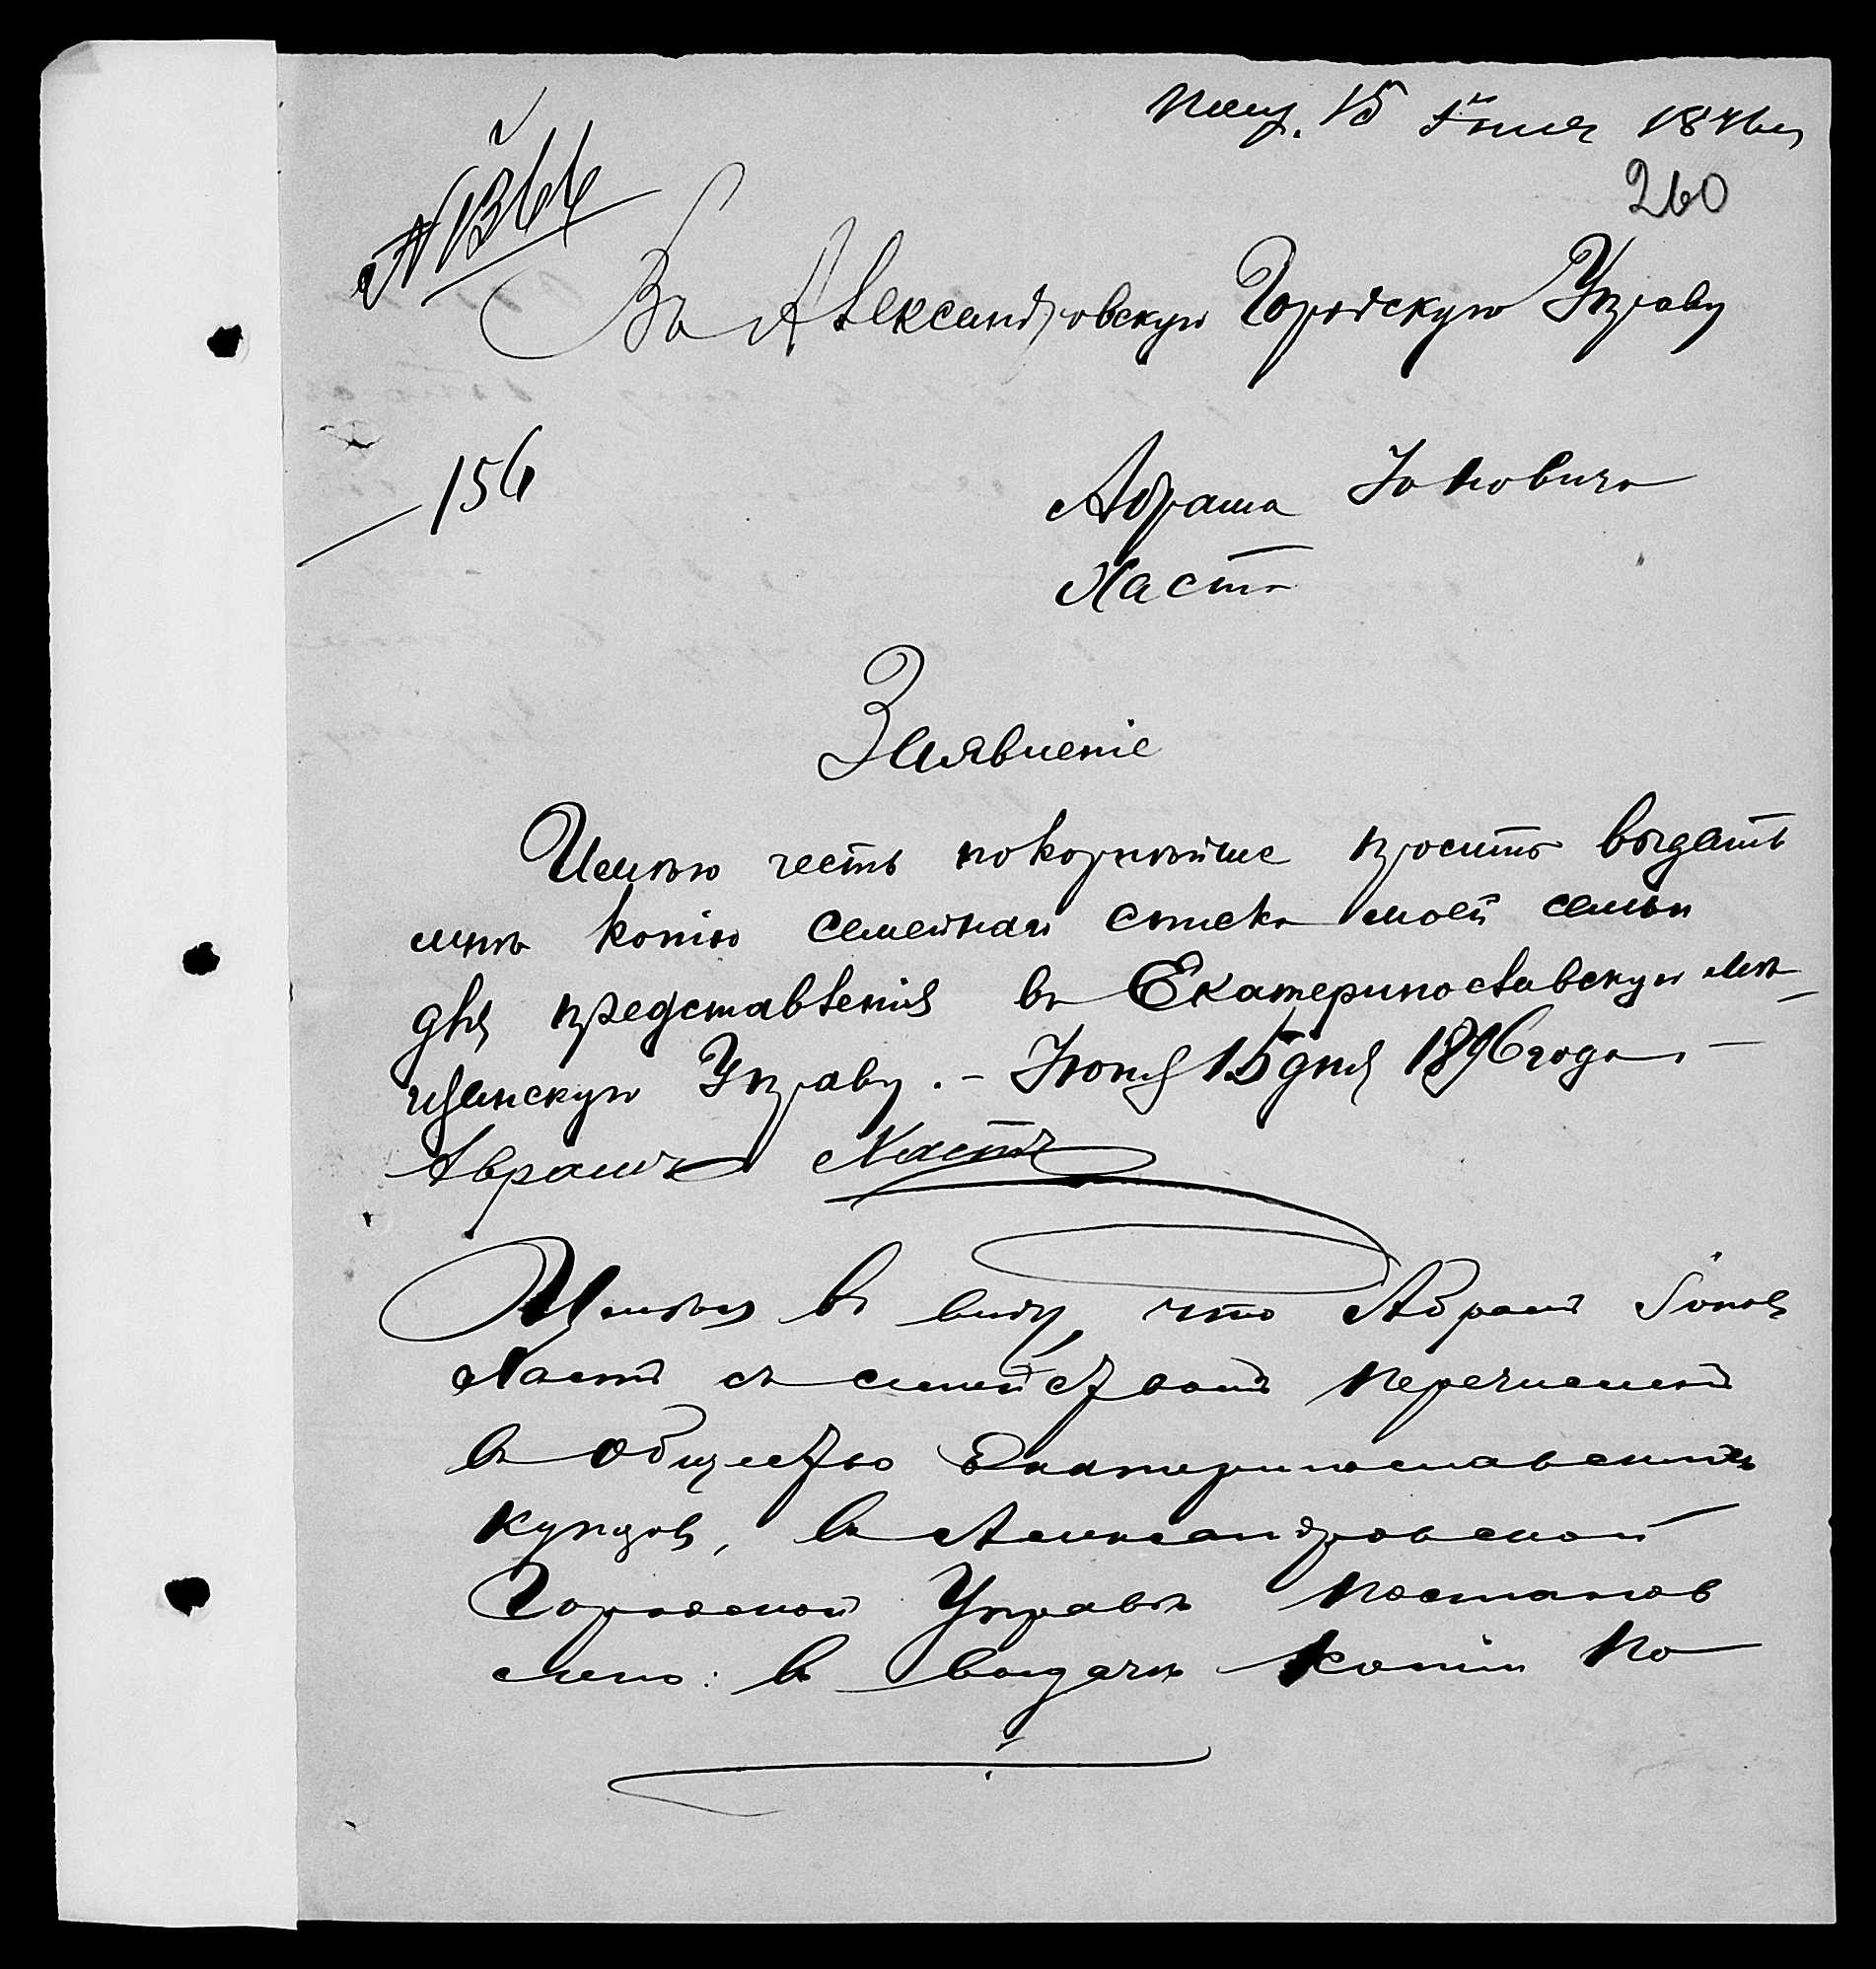 Полу. 15 Іюня 1896 г.
260
№ 1344
Въ Александровскую Городскую Управу
156
Абрама Іоновича
Хаста
Заявленіе
Имѣю честь покорнѣйше просить выдать
мнѣ копію семейнаго списка моей семьи
для представленія въ Екатеринославскую мѣ-
щанскую Управу. - Іюня 15 дня 1896 года. -
Абрамъ Хастъ
Имѣя въ виду, что Абрамъ Іоновъ
Хастъ съ семействомъ перечисленъ
въ общество Екатеринославскихъ
купцовъ, въ Александровской
Городской Управѣ постанов
лено: въ выдачѣ копіи по